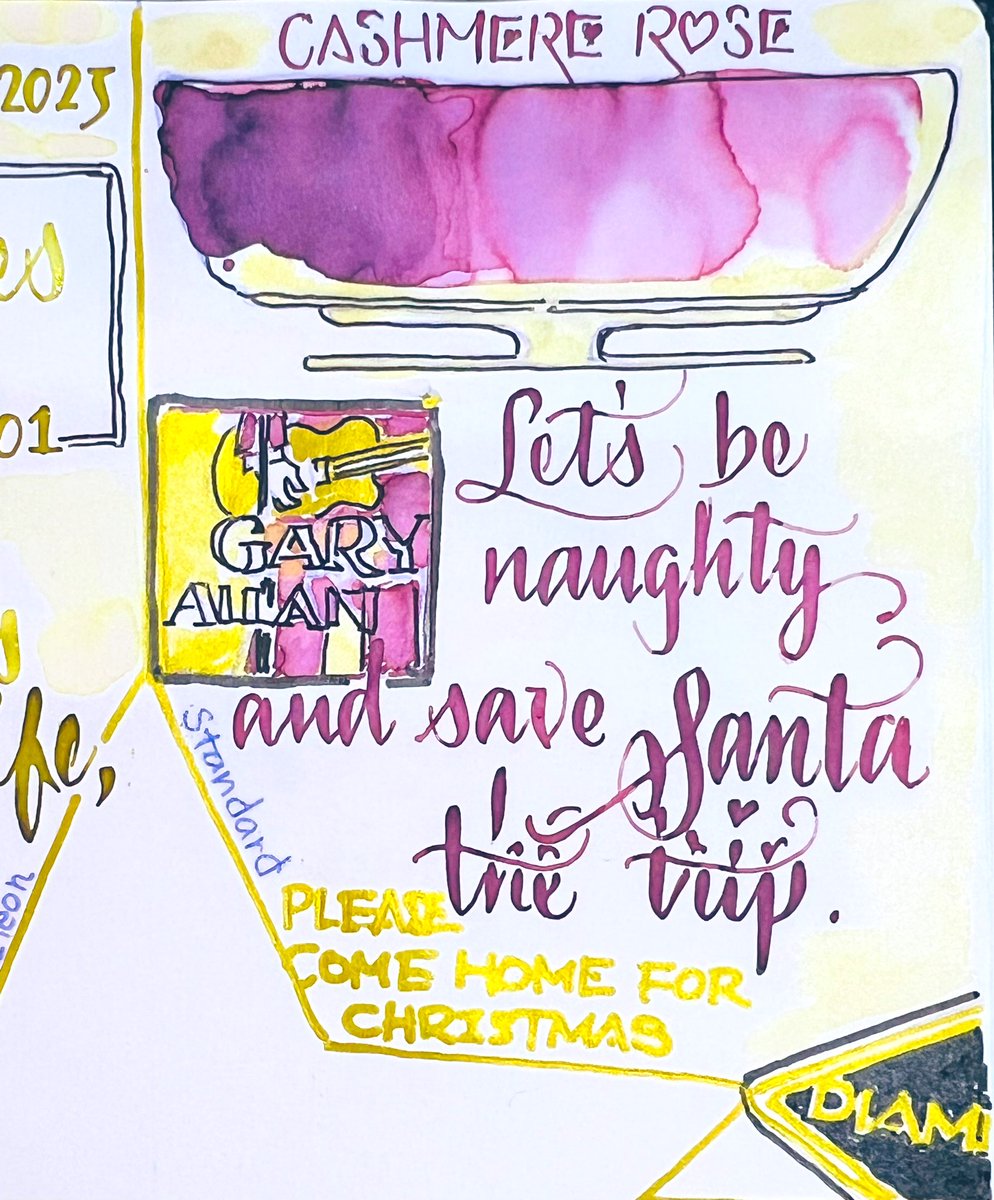 CASHMERE ROSE
2025
es
01
GARY
ALLAN
Let's be
naughty
and save Santa
the trip.
Standard
PLEASE
COME HOME FOR
CHRISTMAS
DIAM